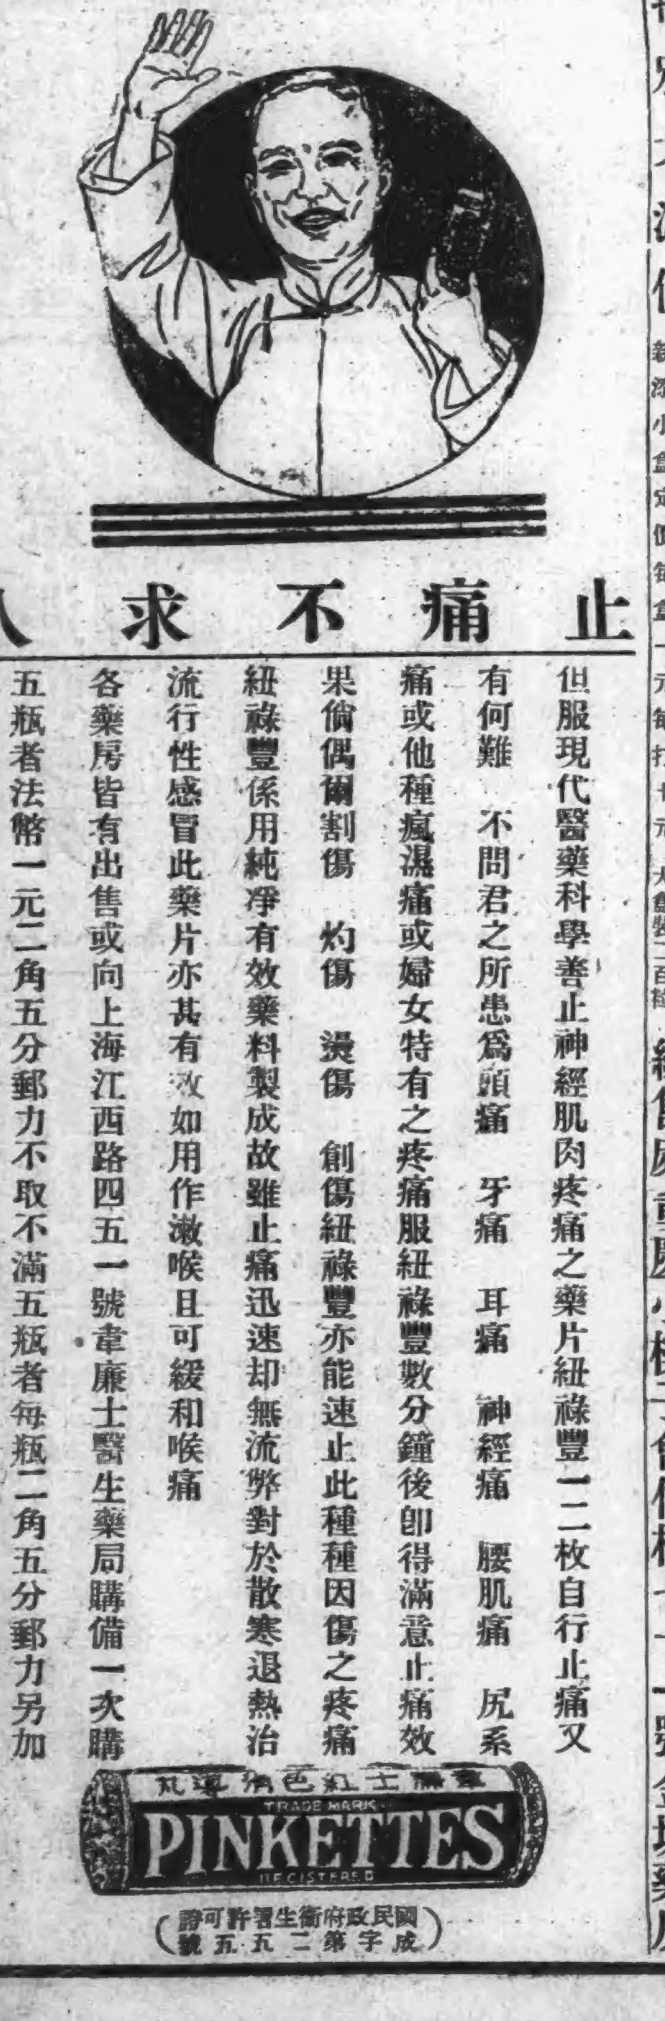 止痛不求人
但服現代醫藥科學善止神經肌肉疼痛之藥片紐祿豐一二枚自行止痛又
有何難 不問君之所患爲頭痛 牙痛 耳痛 神經痛 腰肌痛 尻系
痛或他種瘋濕痛或婦女特有之疼痛服紐祿豐數分鐘後卽得滿意止痛效
果倘偶爾割傷 灼傷 燙傷 創傷紐祿豐亦能速止此種種因傷之疼痛
紐祿豐係用純凈有效藥料製成故雖止痛迅速却無流弊對於散寒退熱治
流行性感冒此藥片亦甚有效如用作漱喉且可緩和喉痛
各藥房皆有出售或向上海江西路四五一號韋廉士醫生藥局購備一次購
五瓶者法幣一元二角五分郵力不取不滿五瓶者每瓶二角五分郵力另加
韋廉士紅色清導丸
TRADE MARK
PINKETTES
REGISTERED
(國民政府衞生署許可證
成字第二五五號)